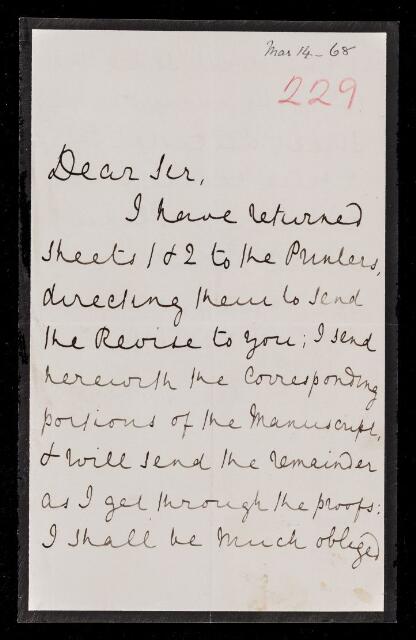 Mar 14 - 68
229
Dear Sir,
I have returned
sheets 1 & 2 to the Printers,
directing them to send
the Revise to you; I send
herewith the corresponding
portions of the Manuscript,
& will send the remainder
as I get through the proofs:
I shall be much obliged